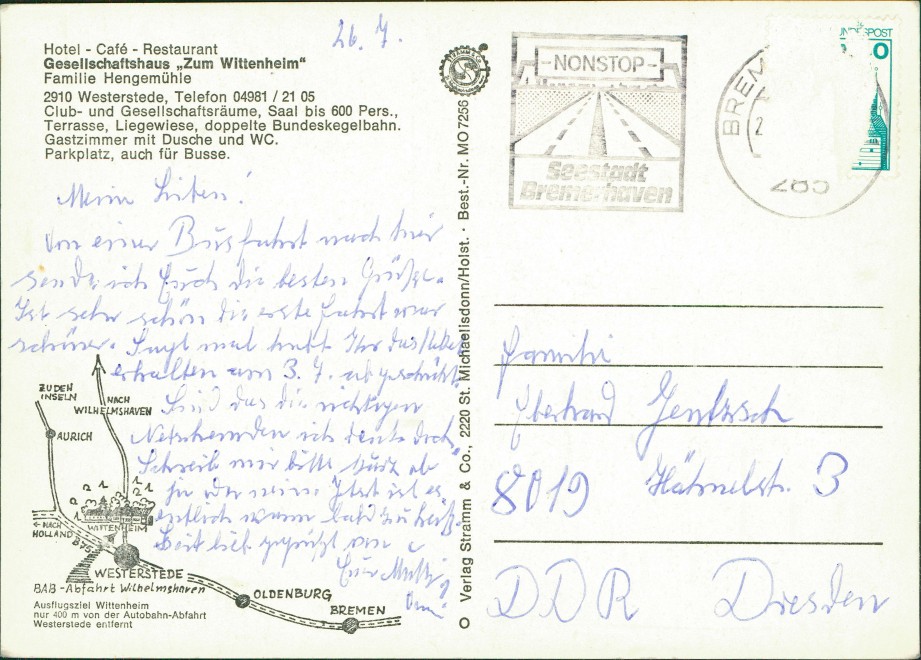 26. 7.
Hotel - Café - Restaurant
Gesellschaftshaus „Zum Wittenheim"
Familie Hengemühle
2910 Westerstede, Telefon 04981 / 21 05
Club- und Gesellschaftsräume, Saal bis 600 Pers.,
Terrasse, Liegewiese, doppelte Bundeskegelbahn.
Gastzimmer mit Dusche und WC.
Parkplatz, auch für Busse.
Meine Lieben!
Von einer Busfahrt nach hier
sende ich Euch die besten Grüße.
Ist sehr schön die erste Fahrt war
schöner. Sagt mal habt Ihr das
erhalten am 3. 7. abgeschickt
Sind das die richtigen
ich denke doch
Schreib mir bitte kurz ob
ja oder nein
bald zu
Seit lieb gegrüßt von
Eure Mutti
ZU DEN
INSELN
NACH
WILHELMSHAVEN
AURICH
WITTENHEIM
← NACH
HOLLAND
B75
WESTERSTEDE
BAB - Abfahrt Wilhelmshaven
OLDENBURG
BREMEN
Ausflugsziel Wittenheim
nur 400 m von der Autobahn-Abfahrt
Westerstede entfernt
Verlag Stramm & Co., 2220 St. Michaelisdonn/Holst. · Best.-Nr. MO 7256
NONSTOP
Seestadt
Bremerhaven
BREM
POST
0
Familie
Jentzsch
8019 3
DDR Dresden